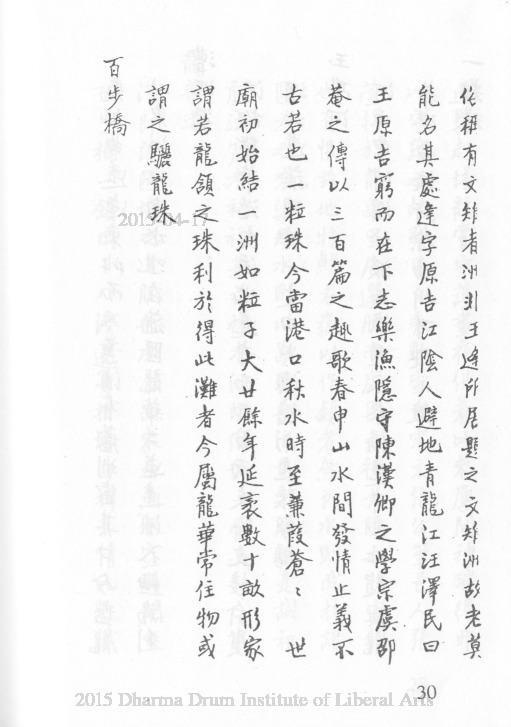 化稱有文雉者洲引王逢所居題之文雉洲故老莫
能名其處逢字原吉江陰人避地青龍江汪澤民曰
王原吉窮而在下志樂漁隱守陳漢卿之學宗虞邵
菴之傳以三百篇之趣歌春申山水間發情止義不
古若也一粒珠今當港口秋水時至蒹葭蒼〻世
廟初始結一洲如粒子大廿餘年延袤數十畝形家
謂若龍頷之珠利於得此灘者今屬龍華常住物或
謂之驪龍珠
百步橋
2013-04-17
30
2015 Dharma Drum Institute of Liberal Arts